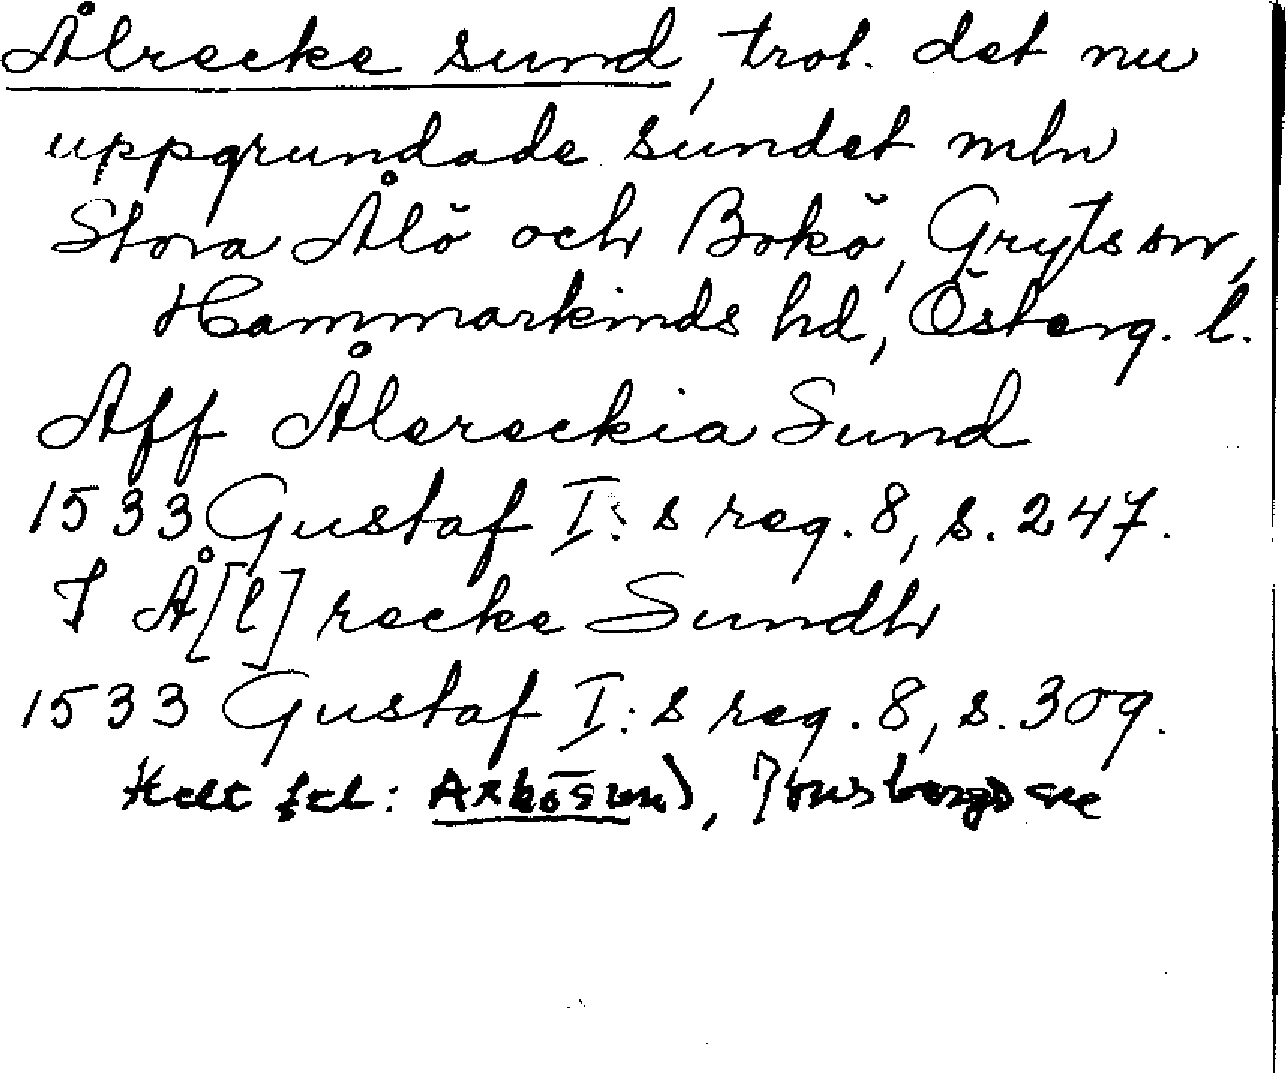 Ålrecke sund, trol. det nu
uppgrundade sundet mln
Stora Ålö och Bokö, Gryts sn,
Hammarkinds hd, Österg. l.
Aff Ålereckia Sund
1533 Gustaf I:s reg. 8, s. 247.
I Å[l]recke Sundh
1533 Gustaf I:s reg. 8, s. 309.
Helt fel: Arkösund, Jonsbergs sn